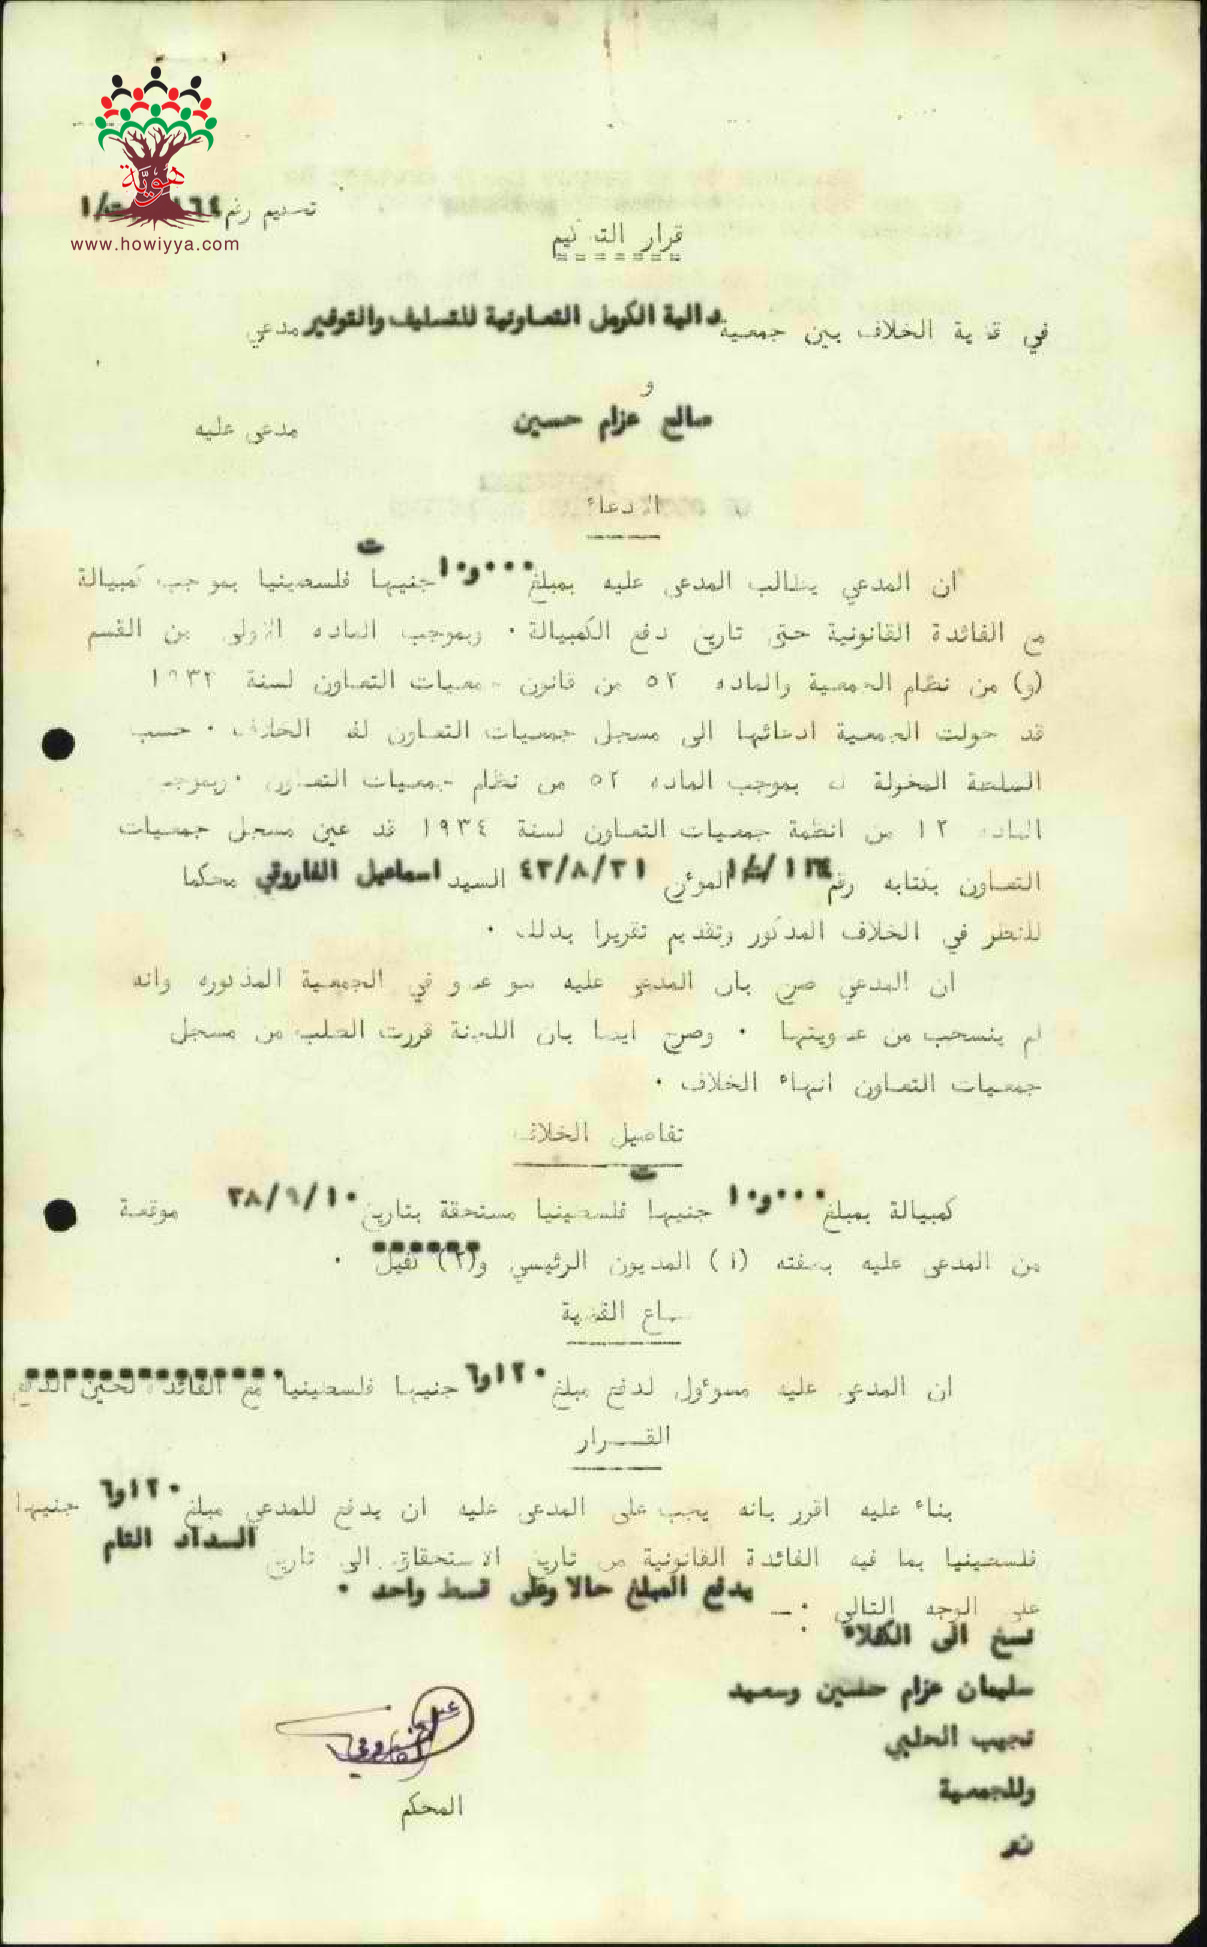 هوية
www.howiyya.com
تسديم رقم ١٦٤ /ت/١
قرار التحكيم
في قضية الخلاف بين جمعية دالية الكرمل التعاونية للتسليف والتوفير مدعي
و
صالح عزام حسين مدعى عليه
الادعاء
ان المدعي يطالب المدعى عليه بمبلغ ١٠و٠٠٠ جنيهات فلسطينيا بموجب كمبيالة
مع الفائدة القانونية حتى تاريخ دفع الكمبيالة ٠ وبموجب الماده الاولى من القسم
(و) من نظام الجمعية والماده ٥٢ من قانون جمعيات التعاون لسنة ١٩٣٣
قد حولت الجمعية ادعائها الى مسجل جمعيات التعاون لفض الخلاف ٠ حسب
السلطة المخولة له بموجب الماده ٥٢ من نظام جمعيات التعاون ٠ وبموجب
الماده ١٢ من انظمة جمعيات التعاون لسنة ١٩٣٤ قد عين مسجل جمعيات
التعاون بكتابه رقم ١٦٤/ت/١ المؤرخ ٤٣/٨/٣١ السيد اسماعيل الفاروقي محكما
للنظر في الخلاف المذكور وتقديم تقريرا بذلك ٠
ان المدعي صرح بان المدعى عليه هو عضو في الجمعية المذكوره وانه
لم ينسحب من عضويتها ٠ وصرح ايضا بان اللجنة قررت الطلب من مسجل
جمعيات التعاون انهاء الخلاف ٠
تفاصيل الخلاف
كمبيالة بمبلغ ١٠و٠٠٠ جنيهات فلسطينيا مستحقة بتاريخ ٣٨/٩/١٠ موقعة
من المدعى عليه بصفته (١) المديون الرئيسي و(٢) كفيل ٠
سماع القضية
ان المدعى عليه مسؤول لدفع مبلغ ٦و١٢٠ جنيها فلسطينيا مع الفائدة لحين الدفع
القــرار
بناء عليه اقرر بانه يجب على المدعى عليه ان يدفع للمدعي مبلغ ٦و١٢٠ جنيها
فلسطينيا بما فيه الفائدة القانونية من تاريخ الاستحقاق الى تاريخ السداد التام
على الوجه التالي :ـ يدفع المبلغ حالا وعلى قسط واحد ٠
نسخ الى الكفلاء :
سليمان عزام حلبي وسعيد
نجيب الحلبي
وللجمعية
المحكم